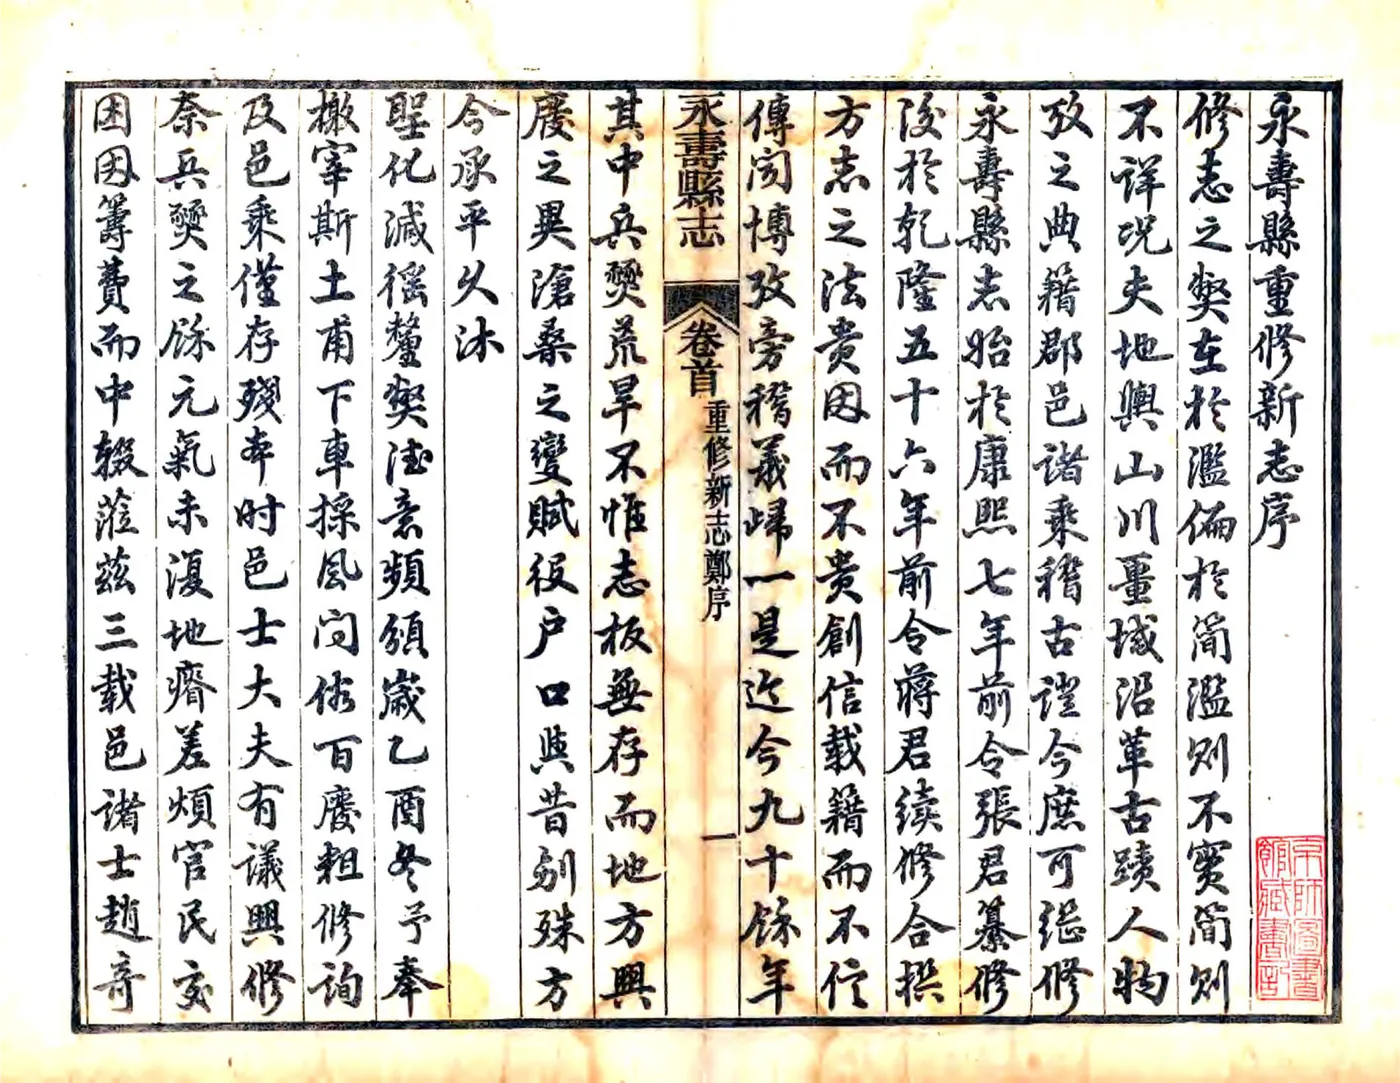 永壽縣重修新志序
修志之獘在於濫偏於简濫则不實简则
不详况夫地輿山川畺域沿革古蹟人物
攷之典籍郡邑诸乘稽古證今庶可缵修
永壽縣志始於康熙七年前令張君纂修
後於乾隆五十六年前令蔣君續修合撰
方志之法贵因而不贵創信載籍而不信
傳闻博攷旁稽義歸一是迄今九十餘年
永壽縣志
卷首
重修新志鄭序
一
其中兵燹荒旱不惟志板無存而地方興
废之異滄桑之變賦役户口與昔剐殊方
今承平久沐
聖化減徭釐獘德意頻頒歲乙酉冬予奉
檄宰斯土甫下車採風问俗百废粗修詢
及邑乘僅存殘本时邑士大夫有議興修
奈兵燹之餘元氣未復地瘠差煩官民交
困因籌費而中輟蒞茲三载邑诸士趙奇
京師圖書館藏書記